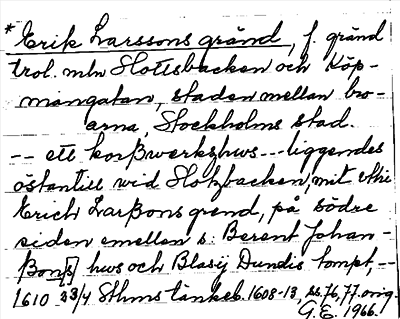 * Erik Larssons gränd, f. gränd
trol. mln Slottsbacken och Köp-
mangatan, staden mellan bro-
arna, Stockholms stad.
-- ett korßwerkzhws --- liggendes
östantill wid Slotzbacken, mit vthi
Erich Larßons grend, på södre
siden emellan s: Berent Johan-
ßon[s] hws och Blasij Dundis tompt, --
1610 23/4 Sthms tänkeb. 1608-13, ss. 76, 77. orig.
G.E. 1966.